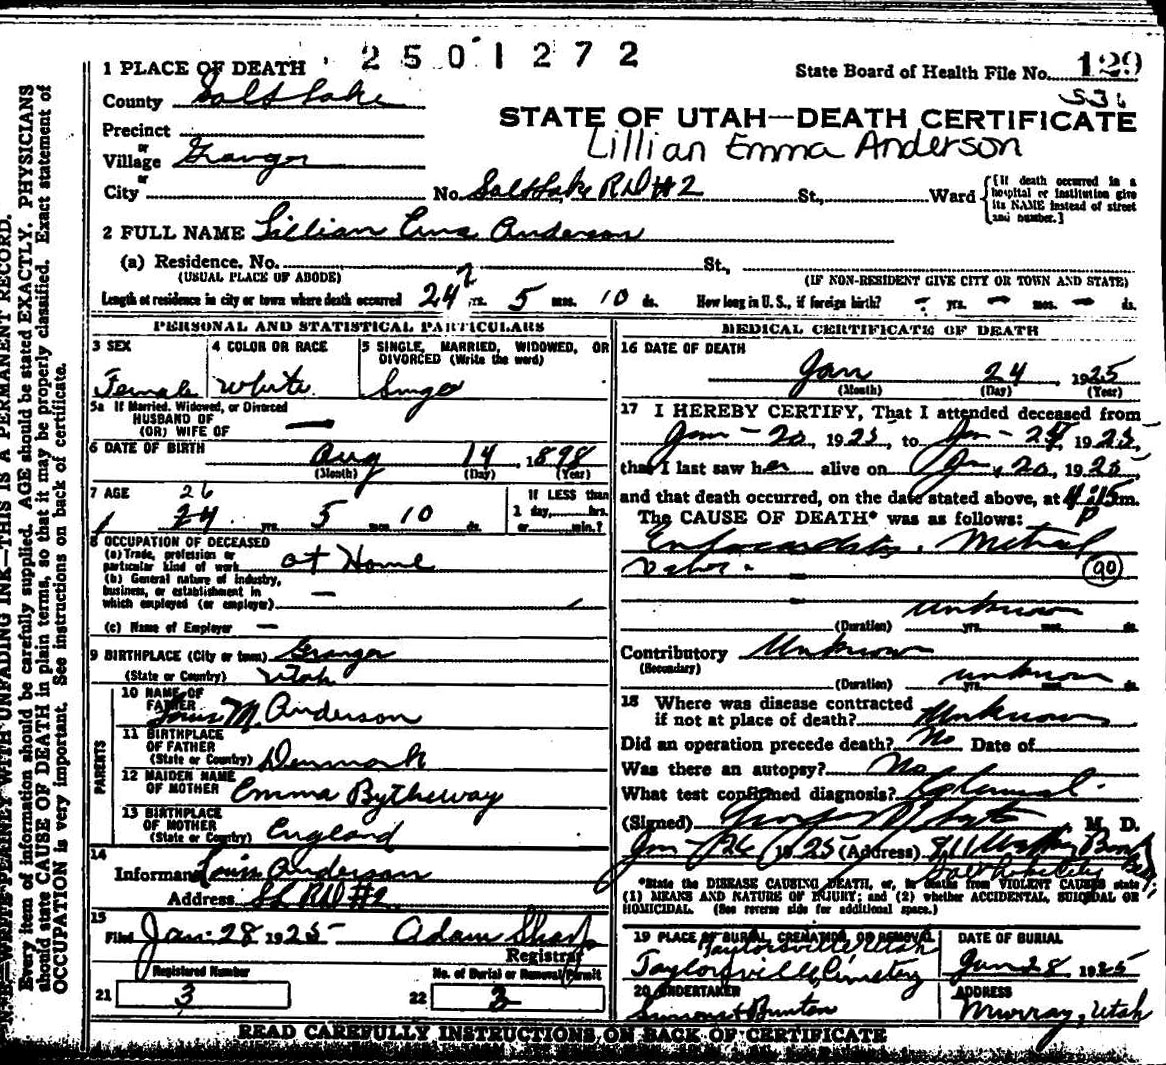 2501272
1 PLACE OF DEATH
State Board of Health File No. 129
536
County Salt Lake
STATE OF UTAH—DEATH CERTIFICATE
Lillian Emma Anderson
Precinct
or
Village Granger
or
City
No. Salt Lake RD #2 St., Ward
[If death occurred in a hospital or institution give its NAME instead of street and number.]
2 FULL NAME Lillian Ema Anderson
(a) Residence, No. St.,
(USUAL PLACE OF ABODE) (IF NON-RESIDENT GIVE CITY OR TOWN AND STATE)
Length of residence in city or town where death occurred 24 yrs. 5 mos. 10 ds. How long in U. S., if foreign birth? - yrs. - mos. - ds.
PERSONAL AND STATISTICAL PARTICULARS
3 SEX
Female
4 COLOR OR RACE
White
5 SINGLE, MARRIED, WIDOWED, OR DIVORCED (Write the word)
Single
5a If Married, Widowed, or Divorced
HUSBAND OF
(OR) WIFE OF —
6 DATE OF BIRTH Aug 14, 1898
(Month) (Day) (Year)
7 AGE 26
24 yrs. 5 mos. 10 ds.
If LESS than
1 day, hrs.
or min.?
8 OCCUPATION OF DECEASED
(a) Trade, profession or
particular kind of work at Home
(b) General nature of industry,
business, or establishment in
which employed (or employer)
(c) Name of Employer —
9 BIRTHPLACE (City or town) Granger
(State or Country) Utah
PARENTS
10 NAME OF
FATHER Louis M Anderson
11 BIRTHPLACE
OF FATHER
(State or Country) Denmark
12 MAIDEN NAME
OF MOTHER Emma Bytheway
13 BIRTHPLACE
OF MOTHER
(State or Country) England
14
Informant Louis Anderson
Address SL RD #2
15
Filed Jan. 28 1925 Adam Sharp
Registrar
Registered Number
21 3
No. of Burial or Removal Permit
22 3
MEDICAL CERTIFICATE OF DEATH
16 DATE OF DEATH
Jan 24, 1925
(Month) (Day) (Year)
17 I HEREBY CERTIFY, That I attended deceased from
Jan - 20, 1925, to Jan - 24, 1925,
that I last saw her alive on Jan, 20, 1925
and that death occurred, on the date stated above, at 4:15 m.
P
The CAUSE OF DEATH* was as follows:
Endocarditis. Metral
Valve.
90
unknown
(Duration) yrs. mos. ds.
Contributory Unknown
(Secondary)
unknown
(Duration) yrs. mos. ds.
18 Where was disease contracted
if not at place of death? Unknown
Did an operation precede death? No Date of
Was there an autopsy? No
What test confirmed diagnosis?
(Signed) M. D.
Jan - 26 1925 (Address) 811
Salt Lake City
*State the DISEASE CAUSING DEATH, or, in deaths from VIOLENT CAUSES state
(1) MEANS AND NATURE OF INJURY; and (2) whether ACCIDENTAL, SUICIDAL OR
HOMICIDAL. (See reverse side for additional space.)
19 PLACE OF BURIAL, CREMATION OR REMOVAL
Taylorsville Utah
Taylorsville Cemetery
DATE OF BURIAL
Jan 28 1925
20 UNDERTAKER
ADDRESS
Murray, Utah
READ CAREFULLY INSTRUCTIONS ON BACK OF CERTIFICATE
N. B.—WRITE PLAINLY WITH UNFADING INK—THIS IS A PERMANENT RECORD.
Every item of information should be carefully supplied. AGE should be stated EXACTLY. PHYSICIANS
should state CAUSE OF DEATH in plain terms, so that it may be properly classified. Exact statement of
OCCUPATION is very important. See instructions on back of certificate.